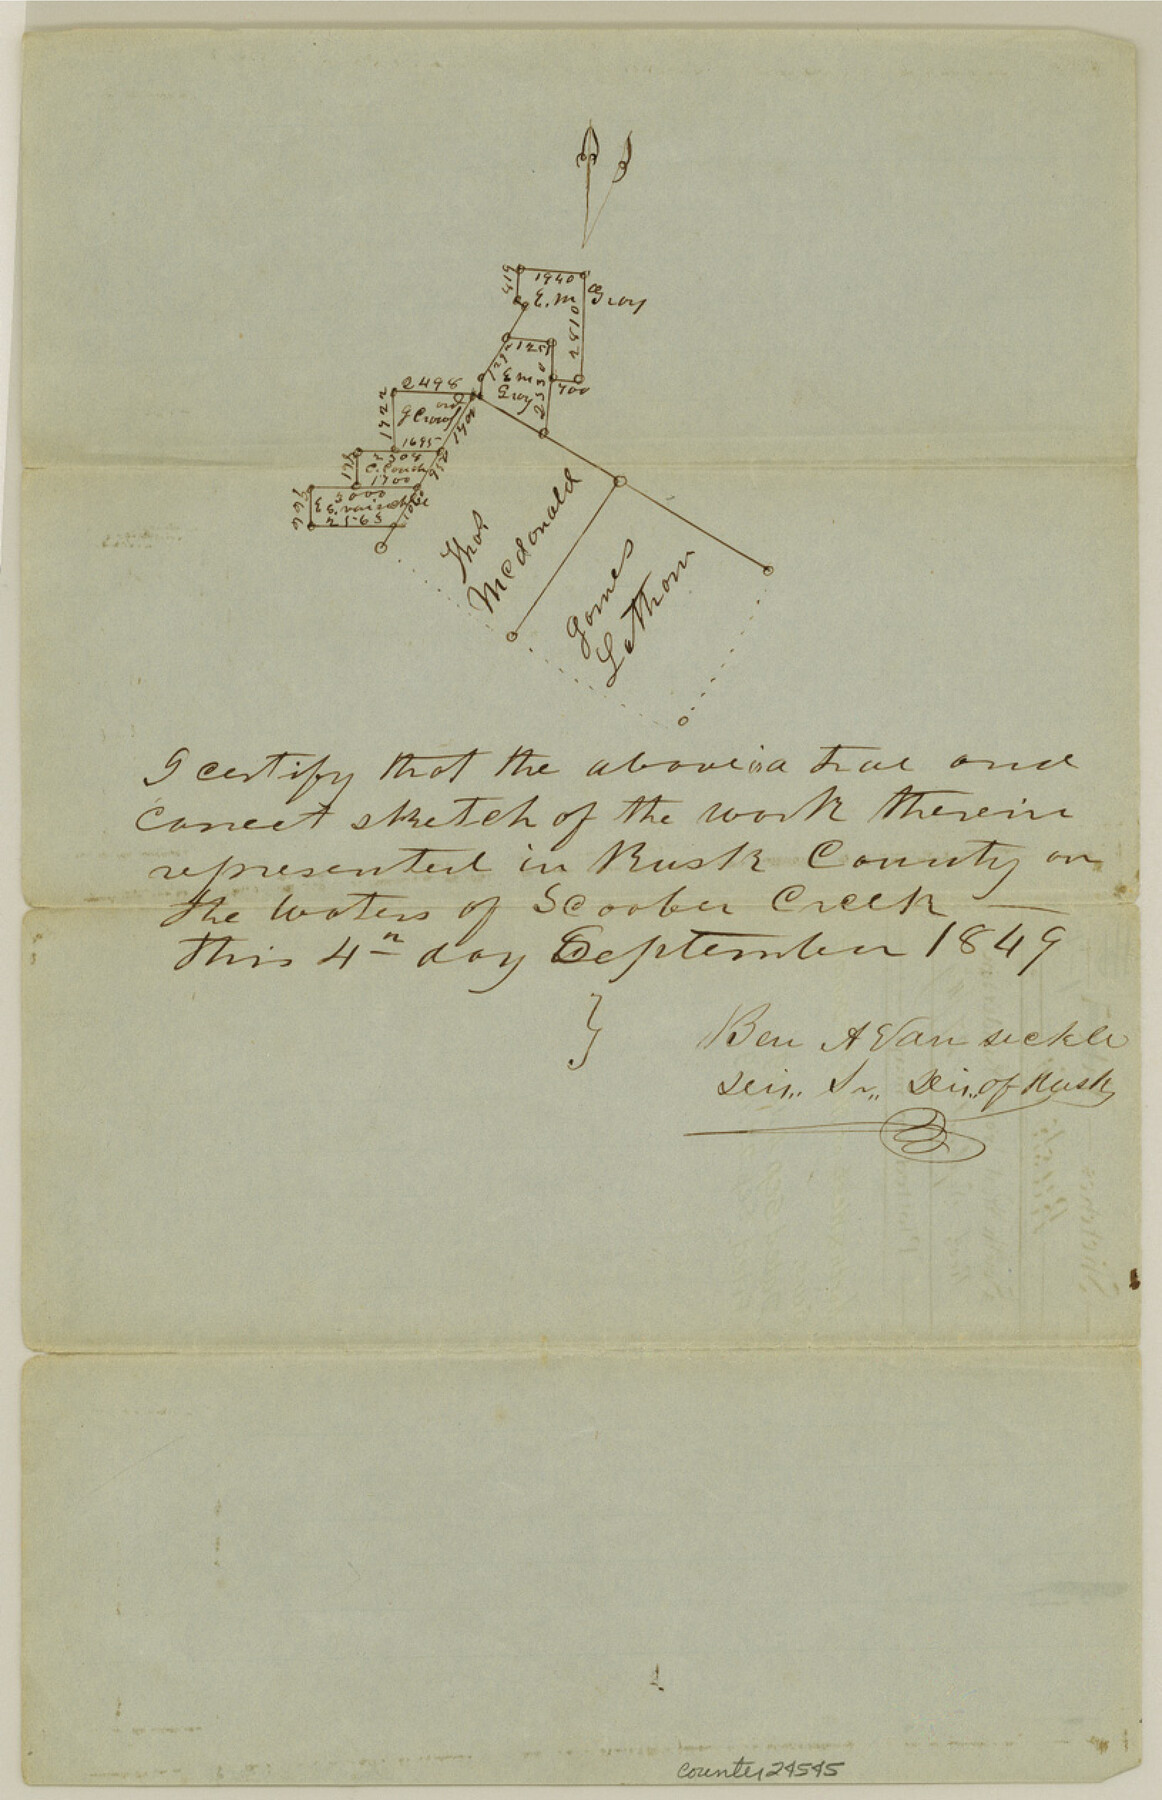 1940
419
E. M Gray
2810
2125
E M
Gray
2530
700
2498
1722
1695
2304
C. Couch
1700
3000
993
2565
Thos
McDonald
James
Lathom
I certify that the above is a true and
correct sketch of the work therein
represented in Rusk County on
the waters of Scoober Creek —
this 4th day September 1849
}
Ben A Van sickle
of Rusk
counter 24545